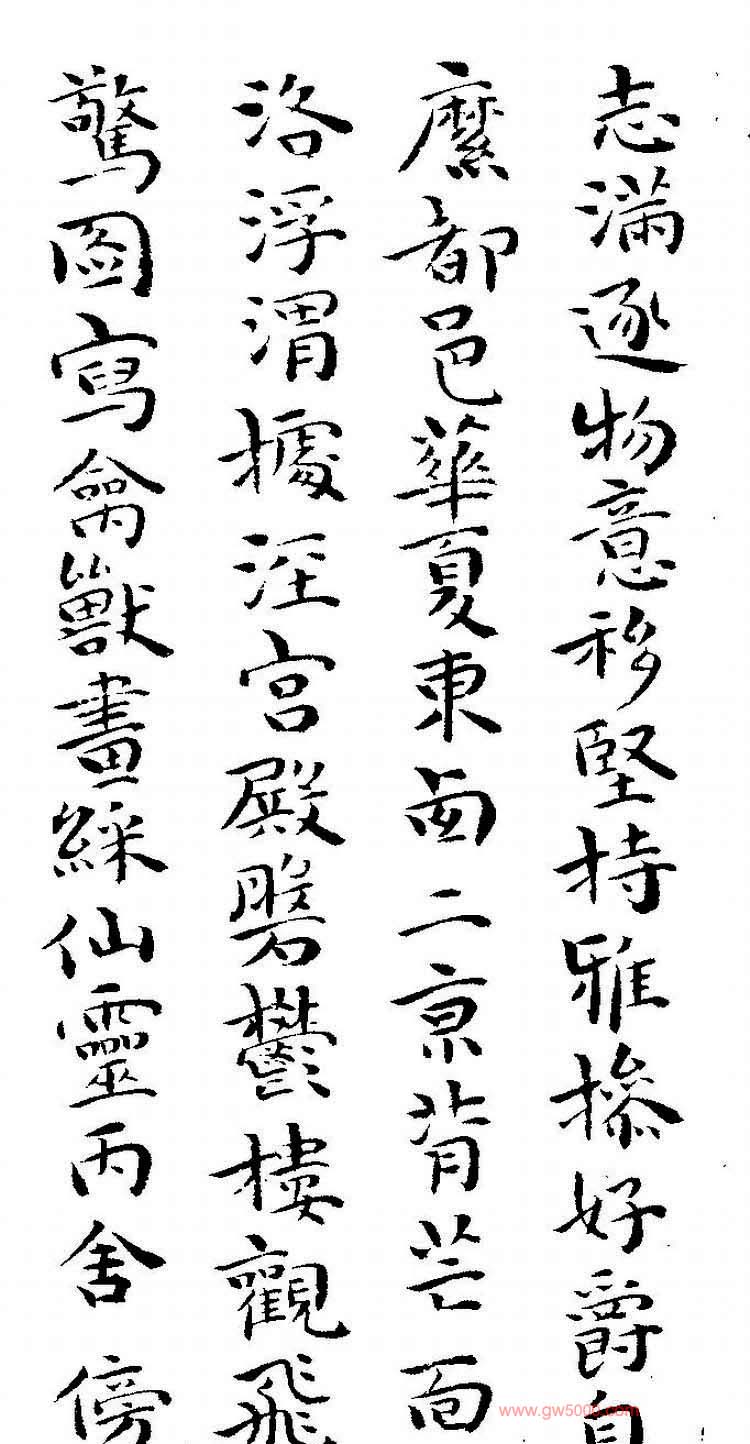 志滿逐物意移堅持雅操好爵自
縻都邑華夏東西二京背芒面
洛浮渭據涇宮殿盤鬱樓觀飛
驚圖寫禽獸畫綵仙靈丙舍傍
www.gw5000.com